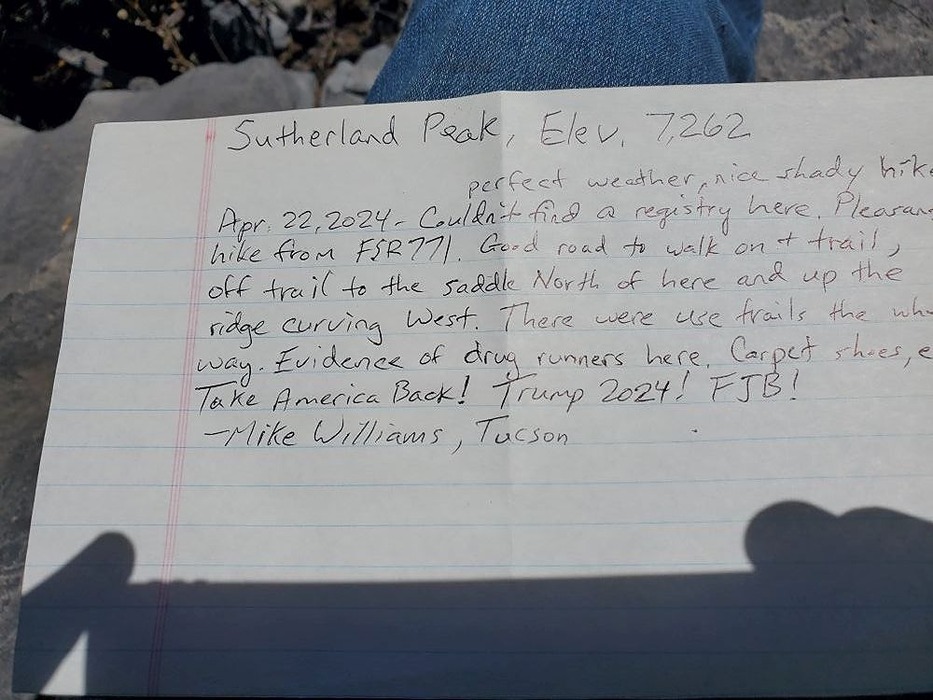 Sutherland Peak, Elev. 7,262
perfect weather, nice shady hike
Apr. 22, 2024 - Couldn't find a registry here. Pleasan
hike from FSR 771. Good road to walk on + trail,
off trail to the saddle North of here and up the
ridge curving West. There were use trails the who
way. Evidence of drug runners here. Carpet shoes, e
Take America Back! Trump 2024! FJB!
-Mike Williams, Tucson